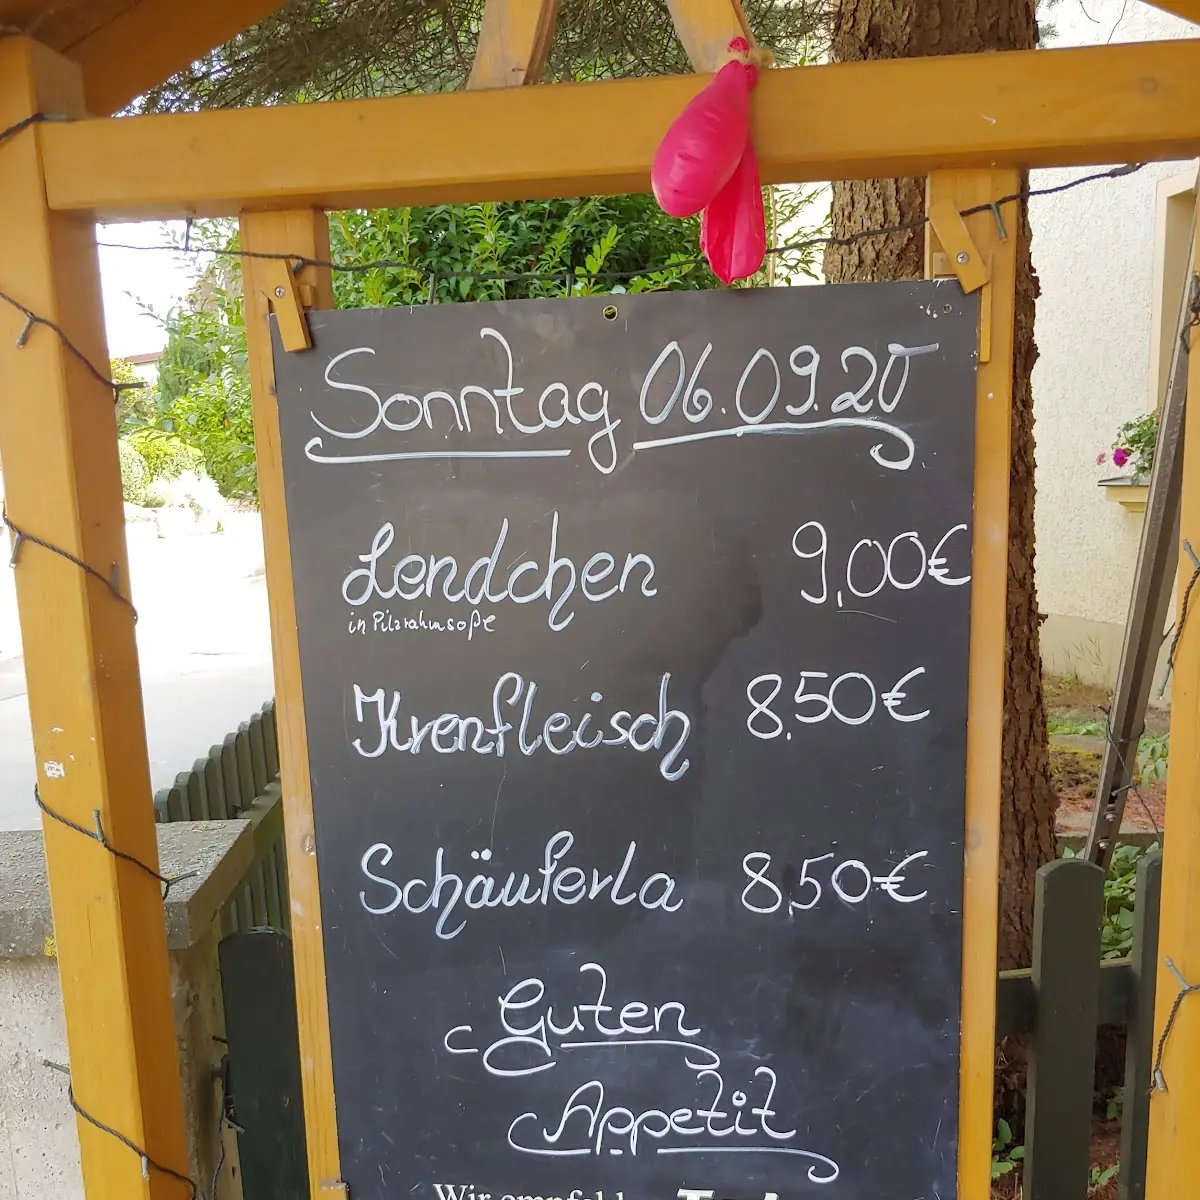 Sonntag 06.09.20
Lendchen 9,00€
in Pilzrahmsoße
Krenfleisch 8,50€
Schäuferla 8,50€
Guten
Appetit
Wir